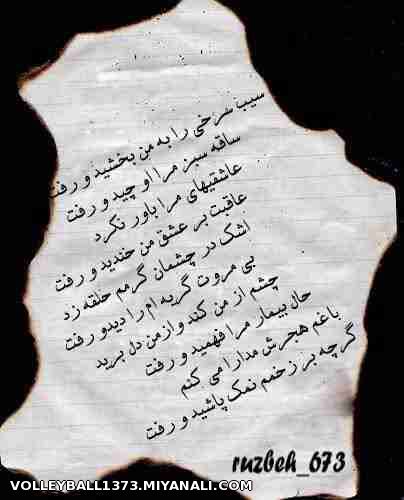 سیب سرخی را به من بخشید و رفت
ساقه سبز مرا او چید و رفت
عاشقیهای مرا باور نکرد
عاقبت بر عشق من خندید و رفت
اشک در چشمان گرمم حلقه زد
بی مروت گریه ام را دید و رفت
چشم از من کند و از من دل برید
حال بیمار مرا فهمید و رفت
با غم هجرش مدارا می کنم
گرچه بر زخمم نمک پاشید و رفت
ruzbeh_673
VOLLEYBALL1373.MIYANALI.COM